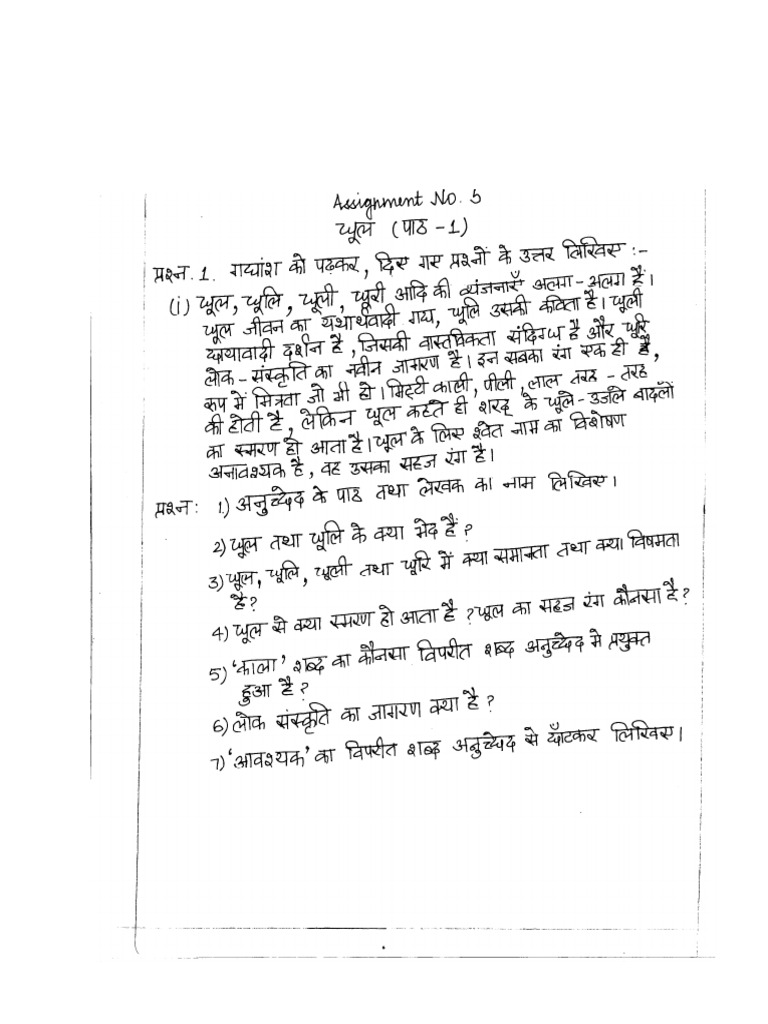 Assignment No. 5
धूल (पाठ -1)
प्रश्न. 1. गद्यांश को पढ़कर, दिए गए प्रश्नों के उत्तर लिखिए :-
(i) धूल, धूलि, धूली, धूरी आदि की व्यंजनाएँ अलग-अलग हैं।
धूल जीवन का यथार्थवादी गद्य, धूलि उसकी कविता है। धूली
छायावादी दर्शन है, जिसकी वास्तविकता संदिग्ध है और धूरि
लोक-संस्कृति का नवीन जागरण है। इन सबका रंग एक ही है,
रूप में भिन्नता जो भी हो। मिट्टी काली, पीली, लाल तरह-तरह
की होती है, लेकिन धूल कहते ही शरद् के धूले-उजले बादलों
का स्मरण हो आता है। धूल के लिए श्वेत नाम का विशेषण
अनावश्यक है, वह उसका सहज रंग है।
प्रश्न: 1) अनुच्छेद के पाठ तथा लेखक का नाम लिखिए।
2) धूल तथा धूलि के क्या भेद हैं?
3) धूल, धूलि, धूली तथा धूरि में क्या समानता तथा क्या विषमता
है?
4) धूल से क्या स्मरण हो आता है? धूल का सहज रंग कौनसा है?
5) 'काला' शब्द का कौनसा विपरीत शब्द अनुच्छेद मे प्रयुक्त
हुआ है?
6) लोक संस्कृति का जागरण क्या है?
7) 'आवश्यक' का विपरीत शब्द अनुच्छेद से छाँटकर लिखिए।